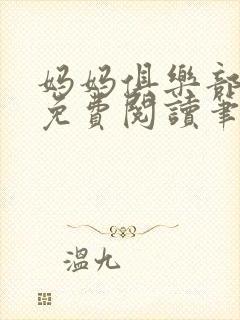 妈妈俱樂部
免費閱讀筆
溫九